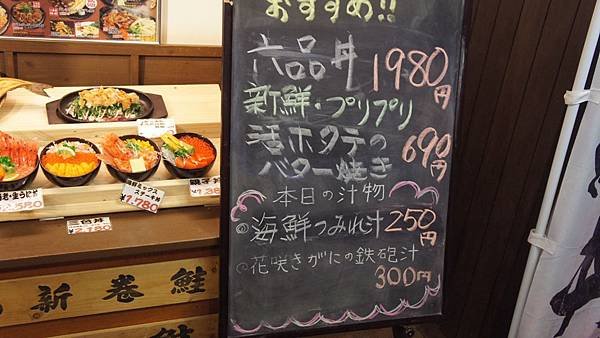 おすすめ!!
六品丼 1980円
新鮮・プリプリ
活ホタテの
バター焼き 690円
本日の汁物
◎海鮮つみれ汁 250円
◎花咲きがにの鉄砲汁
300円
¥1,780
新巻鮭
鮭